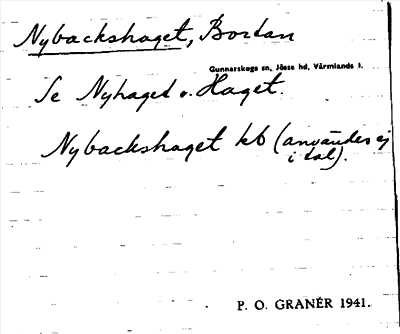 Nybackshaget, Bordan
Gunnarskogs sn, Jösse hd, Värmlands l.
Se Nyhaget o. Haget.
Nybackshaget kb (användes ej
i tal).
P. O. GRANÉR 1941.